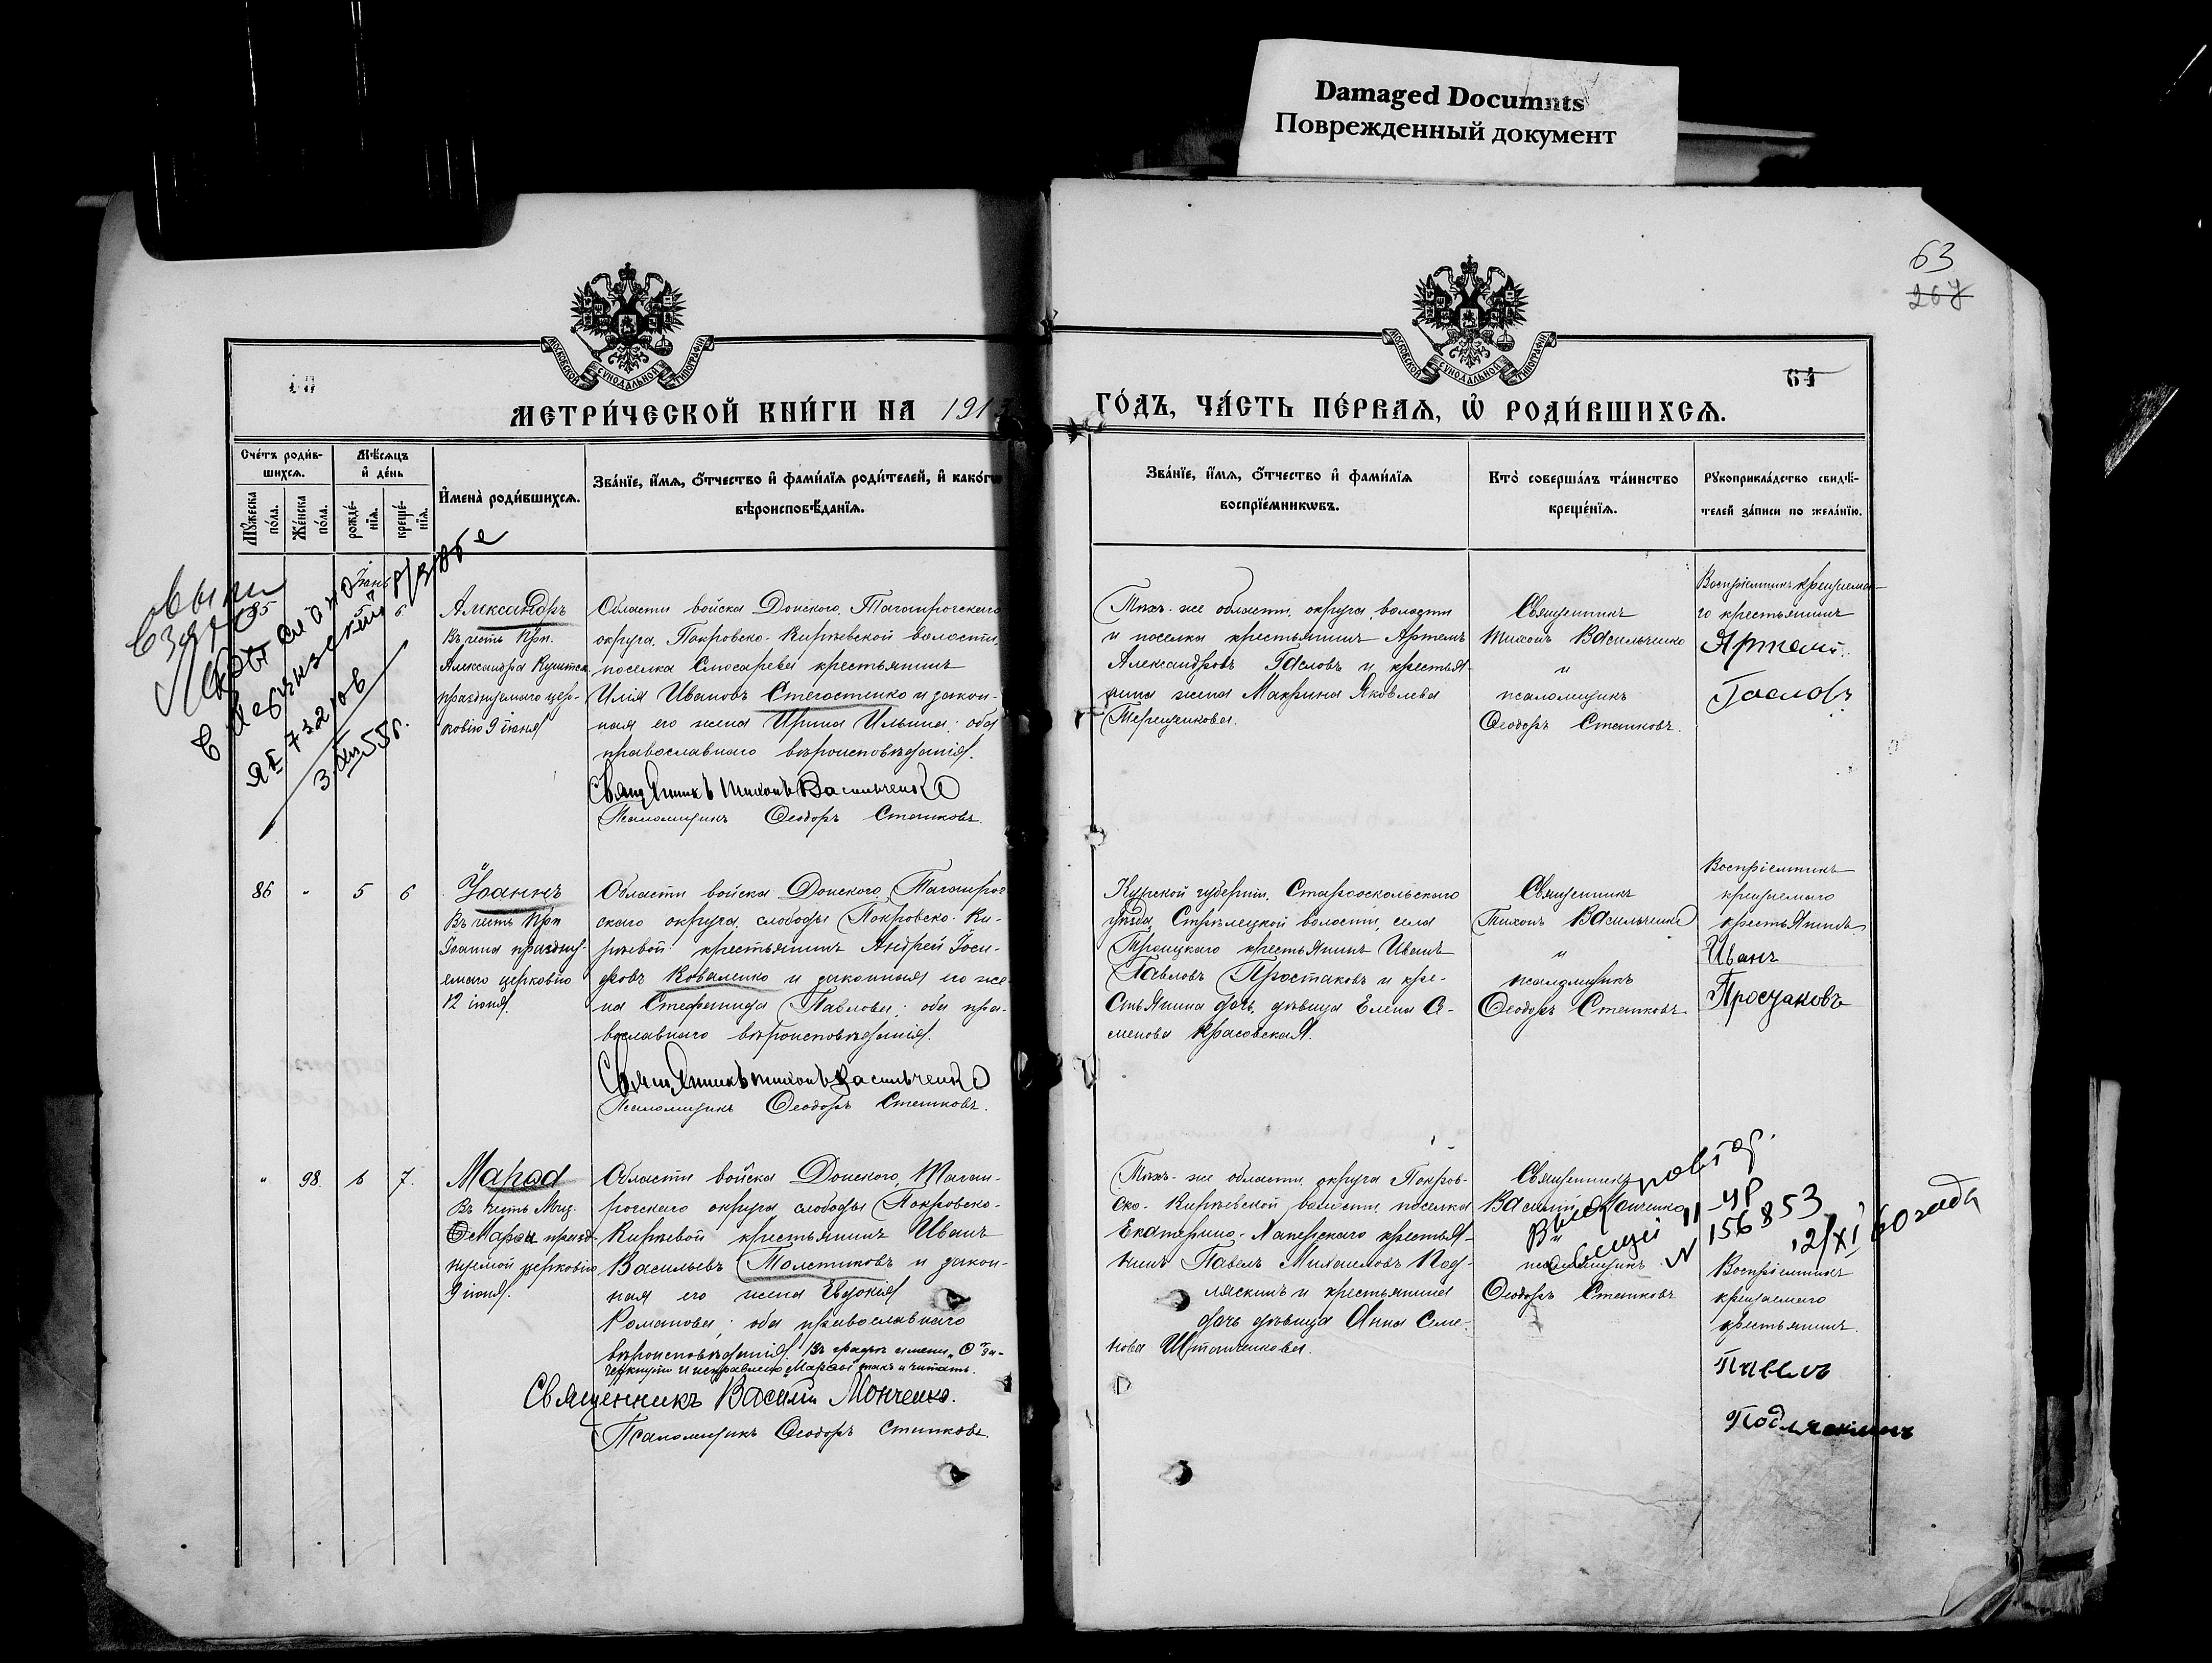 Damaged Documnts
Поврежденный документ
63
267
64
МОСКОВСКОЙ СУНОДАЛЬНОЙ ТИПОГРАФІИ
МОСКОВСКОЙ СУНОДАЛЬНОЙ ТИПОГРАФІИ
МЕТРИ́ЧЕСКОЙ КНИ́ГИ НА 191
ГО́ДЪ, ЧА́СТЬ ПЕ́РВАѦ, Ѡ҆ РОДИ́ВШИХСѦ.
Сче́тъ роди́в-
шихсѧ.
Мꙋ́жеска по́ла.
Же́нска по́ла.
Мѣ́сѧцъ и҆ де́нь
рожде́-
нїѧ.
креще́-
нїѧ.
И҆мена̀ роди́вшихсѧ.
Зва́нїе, и҆́мѧ, ѻ҆́тчество и҆ фами́лїѧ роди́телей, и҆ како́гѡ
вѣроисповѣ́данїѧ.
Зва́нїе, и҆́мѧ, ѻ҆́тчество и҆ фами́лїѧ
воспрїе́мникѡвъ.
Кто̀ соверша́лъ та́инство
креще́нїѧ.
Рꙋкоприкла́дство свидѣ́-
телей за́писи по жела́нїю.
85
6
Александръ
Въ честь Прп.
Александра Куштск.
празднуемаго цер-
ковію 9 іюня
Области войска Донского, Таганрогскаго
округа, Покровско-Киреевской волости,
поселка Слюсарева крестьянинъ
Илія Ивановъ Стегостенко и закон-
ная его жена Ирина Ильина; оба
православнаго вѣроисповѣданія.
Священникъ Тихонъ Васильченко
Псаломщикъ Ѳеодоръ Стешковъ.
Тѣхъ-же области, округа, волости
и поселка крестьянинъ Артемъ
Александровъ Гасловъ и крестья-
нина жена Макрина Яковлева
Терещенкова.
Священникъ
Тихонъ Васильченко
и
псаломщикъ
Ѳеодоръ Стешковъ.
Воспріемникъ крещаема-
го крестьянинъ
Артемъ
Гасловъ
№ 732108
86 " 5 6
Іоаннъ
Въ честь Прп
Іоанна празднуе-
емаго церковію
12 іюня.
Области войска Донского, Таганрог
скаго округа, слободы Покровско-Ки-
реевой крестьянинъ Андрей Іоси-
фовъ Коваленко и законная его же-
на Стефанида Павлова; оба пра-
вославнаго вѣроисповѣданія.
Священникъ Тихонъ Васильченко
Псаломщикъ Ѳеодоръ Стешковъ.
Курской губерніи, Старооскольскаго
уѣзда, Стрѣлецкой волости, села
Троицкаго крестьянинъ Иванъ
Павловъ Простаковъ и кре-
стьянина дочь, дѣвица Елена Се-
менова Красовская.
Священникъ
Тихонъ Васильченко
и
псаломщикъ
Ѳеодоръ Стешковъ
Воспріемникъ
крещаемаго
крестьянинъ
Иванъ
Простаковъ
" 98. 6 7.
Марѳа
Въ честь Муц.
Марѳы празд-
нуемой церковію
9 іюня.
Области войска Донского, Таган-
рогскаго округа слободы Покровско-
Киреевой крестьянинъ Иванъ
Васильевъ Толстиковъ и закон-
ная его жена Евдокія
Романова; оба православнаго
вѣроисповѣданія. Въ графѣ имени „Ѳ" за-
черкнуто и исправлено „Марѳы" такъ и читать.
Священникъ Василій Монченко.
Псаломщикъ Ѳеодоръ Стешковъ.
Тѣхъ-же области, округа Покров-
ско-Киреевской волости поселка
Екатерино-Хапёрскаго крестья-
нинъ Павелъ Михаиловъ Под-
ляскинъ и крестьянина
дочь дѣвица Анна Семе-
нова Штанченкова.
Священникъ
Василій Монченко
и
псаломщикъ
Ѳеодоръ Стешковъ
N 156853
12/XI 60 года
Воспріемникъ
крещаемаго
крестьянинъ
Павелъ
Подляскинъ